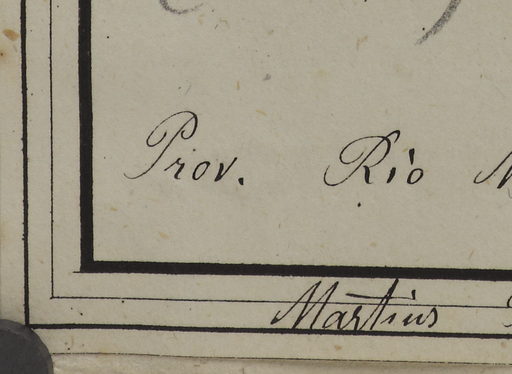 Prov. Rio
Martius